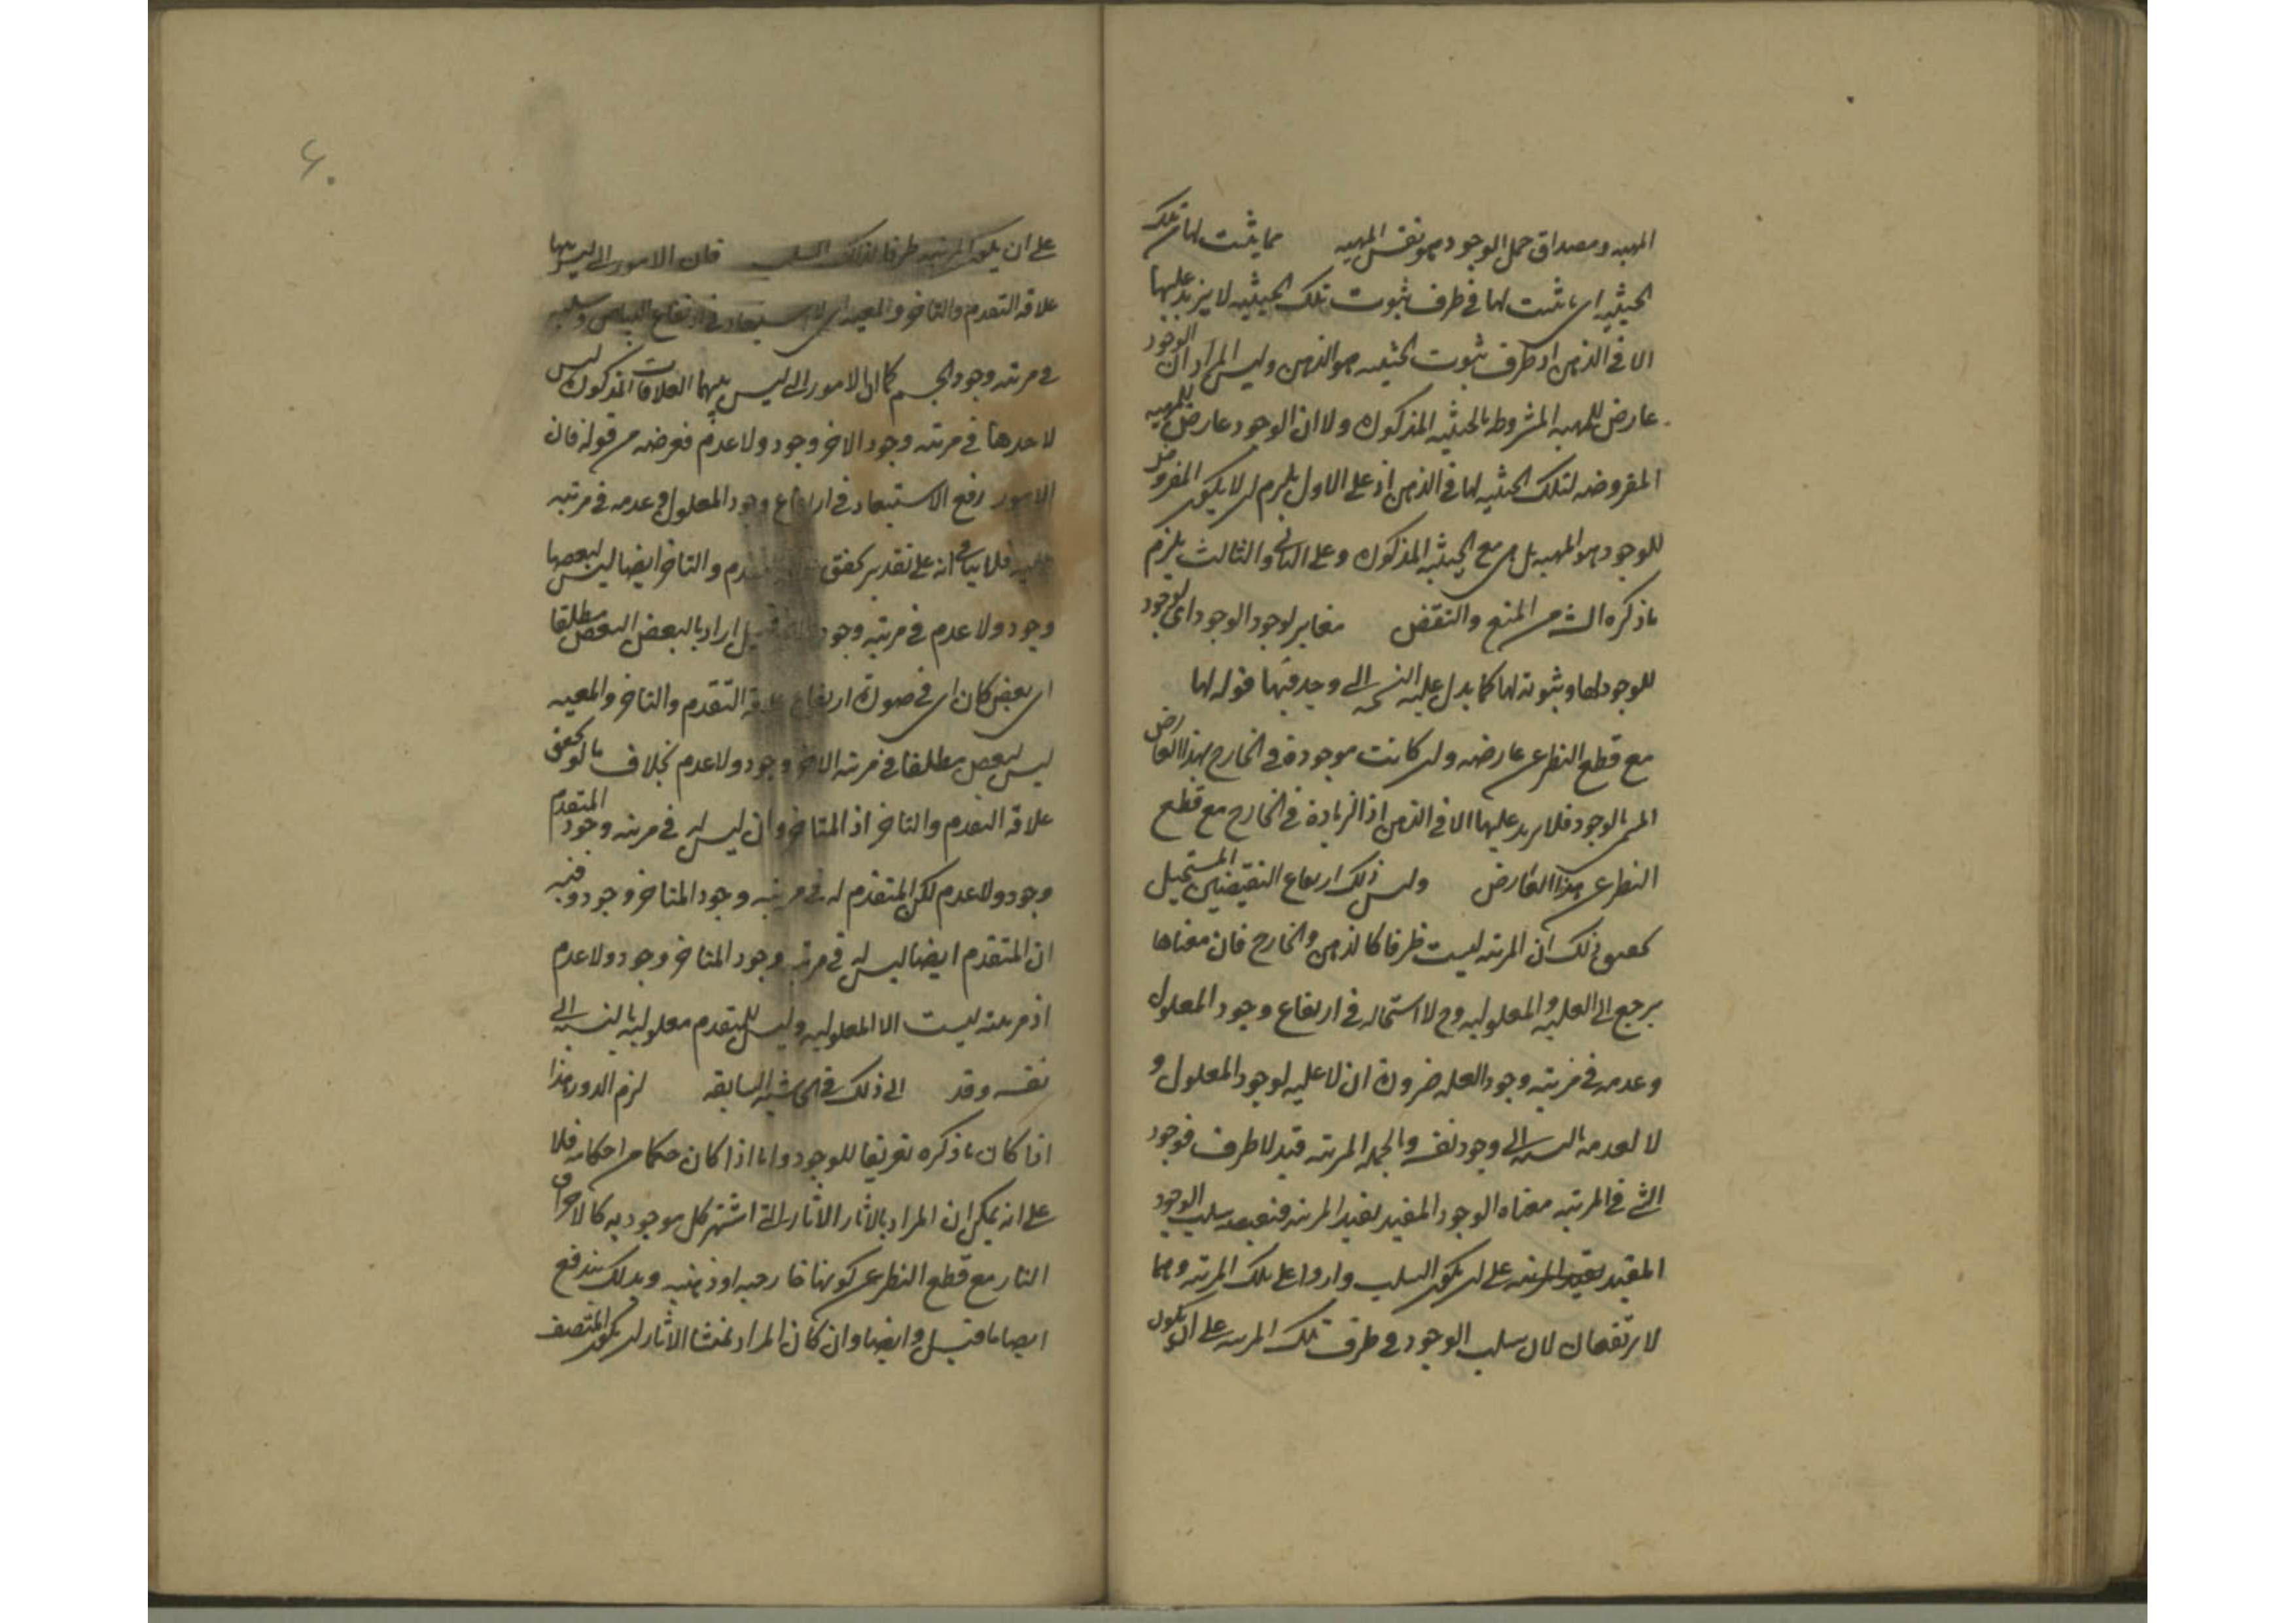 المهيه ومصداق حمل الوجود هو نفس المهيه مما يثبت لها تلك
الحيثيه اى ما ثبت لها فى ظرف ثبوت تلك الحيثيه لا يزيد عليها
الا فى الذهن اذ ظرف ثبوت الحيثيه هو الذهن وليس المراد ان الوجود
عارض للمهيه المشروطه بالحيثيه المذكوره ولا ان الوجود عارض للمهيه
المفروضه لتلك الحيثيه لها فى الذهن اذ على الاول يلزم ان لا يكون المفروض
للوجود هو المهيه بل هى مع الحيثيه المذكوره وعلى الثانى والثالث يلزم
ما ذكره الش من المنع والنقض مغاير لوجود الوجود اى لوجود
للوجود لها وثبوته لها كما يدل عليه النسخه التى وجد فيها قوله لها
مع قطع النظر عن عارضه وان كانت موجودة فى الخارج بهذا العارض
المسمى بالوجود فلا يزيد عليها الا فى الذهن اذ الزيادة فى الخارج مع قطع
النظر عن هذا العارض وليس ذلك ارتفاع النقيضين المستحيل
تحقيق ذلك ان المرتبه ليست ظرفا كالذهن والخارج فان معناها
يرجع الى العليه والمعلوليه وح لا استحاله فى ارتفاع وجود المعلول
وعدمه فى مرتبه وجود العله ضرورة ان لا عليه لوجود المعلول و
لا لعدمه بالنسبه الى وجود نفسه وبالجمله المرتبه قيد لا ظرف فوجود
الشئ فى المرتبه معناه الوجود المقيد بقيد المرتبه فنقيضه سلب الوجود
المقيد بقيد المرتبه على ان يكون السلب واردا على تلك المرتبه وهما
لا يرتفعان لان سلب الوجود فى ظرف تلك المرتبه على ان يكون
على ان يكون المرتبه ظرفا لذلك السلب فان الامور التى ليس بينها
علاقه التقدم والتاخر والمعيه اى لا استبعاد فى ارتفاع البياض وسلبه
فى مرتبه وجود الجسم كما ان الامور التى ليس بينهما العلاقات المذكوره ليس
لاحدها فى مرتبه وجود الاخر وجود ولا عدم فغرضه من قوله فان
الامور رفع الاستبعاد فى ارتفاع وجود المعلول وعدمه فى مرتبه
فلا ينافى انه على تقدير تحقق التقدم والتاخر ايضا ليس لبعضها
وجود ولا عدم فى مرتبه وجود قيل اراد بالبعض البعض مطلقا
اى بعض كان اى فى صورة ارتفاع علاقه التقدم والتاخر والمعيه
ليس لبعض مطلقا فى مرتبه الاخر وجود ولا عدم بخلاف ما لو تحقق
علاقه التقدم والتاخر اذ المتاخر وان ليس له فى مرتبه وجود المتقدم
وجود ولا عدم لكن المتقدم له فى مرتبه وجود المتاخر وجود وفيه
ان المتقدم ايضا ليس له فى مرتبه وجود المتاخر وجود ولا عدم
اذ مرتبته ليست الا المعلوليه وليس للمتقدم معلوليه بالنسبه الى
نفسه وقد الى ذلك فى الحاشيه السابقه لزم الدور هذا
اذا كان ما ذكره تعريفا للوجود واما اذا كان حكما من احكامه فلا
على انه يمكن ان المراد بالاثار الاثار التى اشتهر كل موجود به كالاحراق
النار مع قطع النظر عن كونها خارجيه او ذهنيه وبذلك يندفع
ايضا ما قيل وايضا وان كان المراد بمنشا الاثار ان يكون المتصف
۶۰